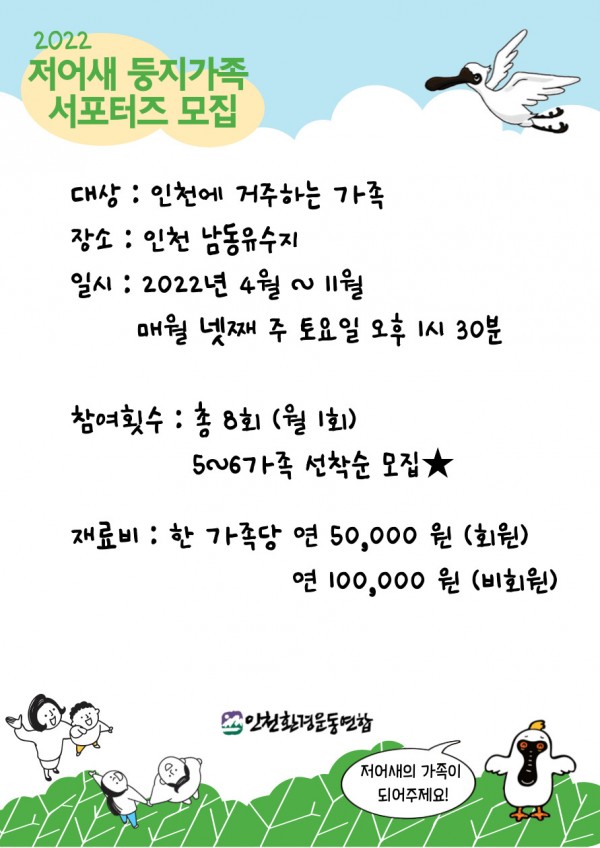 2022
저어새 둥지가족
서포터즈 모집
대상 : 인천에 거주하는 가족
장소 : 인천 남동유수지
일시 : 2022년 4월 ~ 11월
매월 넷째 주 토요일 오후 1시 30분
참여횟수 : 총 8회 (월 1회)
5~6가족 선착순 모집★
재료비 : 한 가족당 연 50,000 원 (회원)
연 100,000 원 (비회원)
인천환경운동연합
저어새의 가족이
되어주제요!